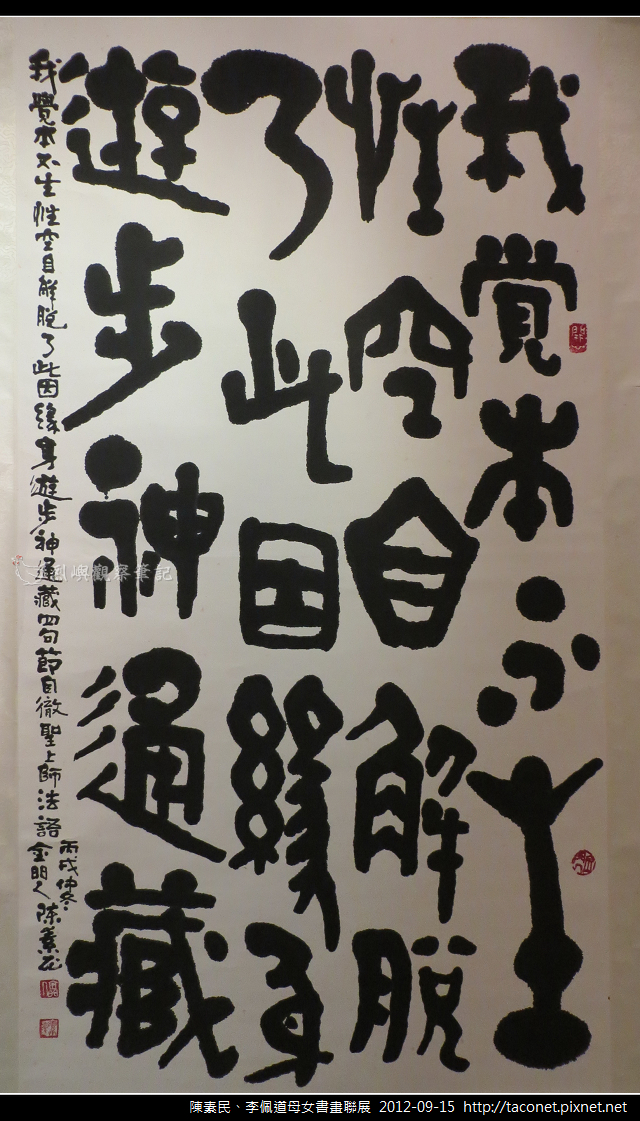 我覺本不生
性空自解脫
了此因緣身
遊步神通藏
我覺本不生性空自解脫了此因緣身遊步神通藏四句節自徹聖上師法語
丙戌仲冬
金門人陳素民
烈嶼觀察筆記
陳素民、李佩道母女書畫聯展 2012-09-15 http://taconet.pixnet.net